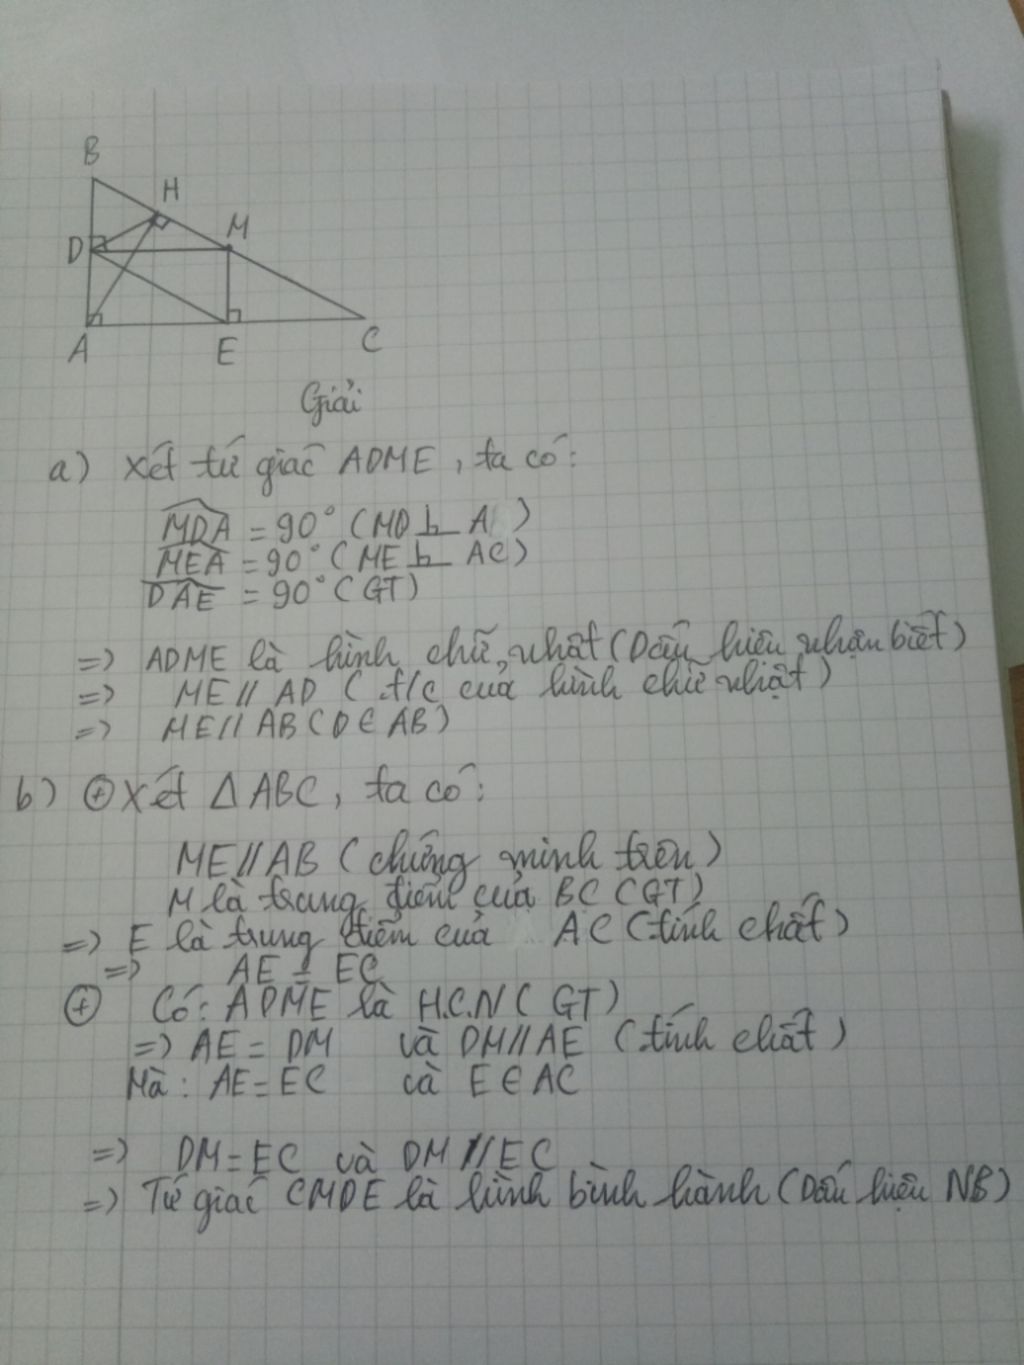 B
H
M
D
A
E
C
Giải
a) Xét tứ giác ADME, ta có:
MDA = 90° (MD ⊥ A )
MEA = 90° (ME ⊥ AC)
DAE = 90° (GT)
=> ADME là hình chữ nhật (Dấu hiệu nhận biết)
=> ME // AD ( t/c của hình chữ nhật)
=> ME // AB (D ∈ AB)
b) ⊕ Xét Δ ABC, ta có:
ME // AB (chứng minh trên)
M là trung điểm của BC (GT)
=> E là trung điểm của AC (tính chất)
=> AE = EC
⊕ Có: ADME là H.C.N (GT)
=> AE = DM và DM // AE (tính chất)
Mà: AE = EC và E ∈ AC
=> DM = EC và DM // EC
=> Tứ giác CMDE là hình bình hành (Dấu hiệu NB)